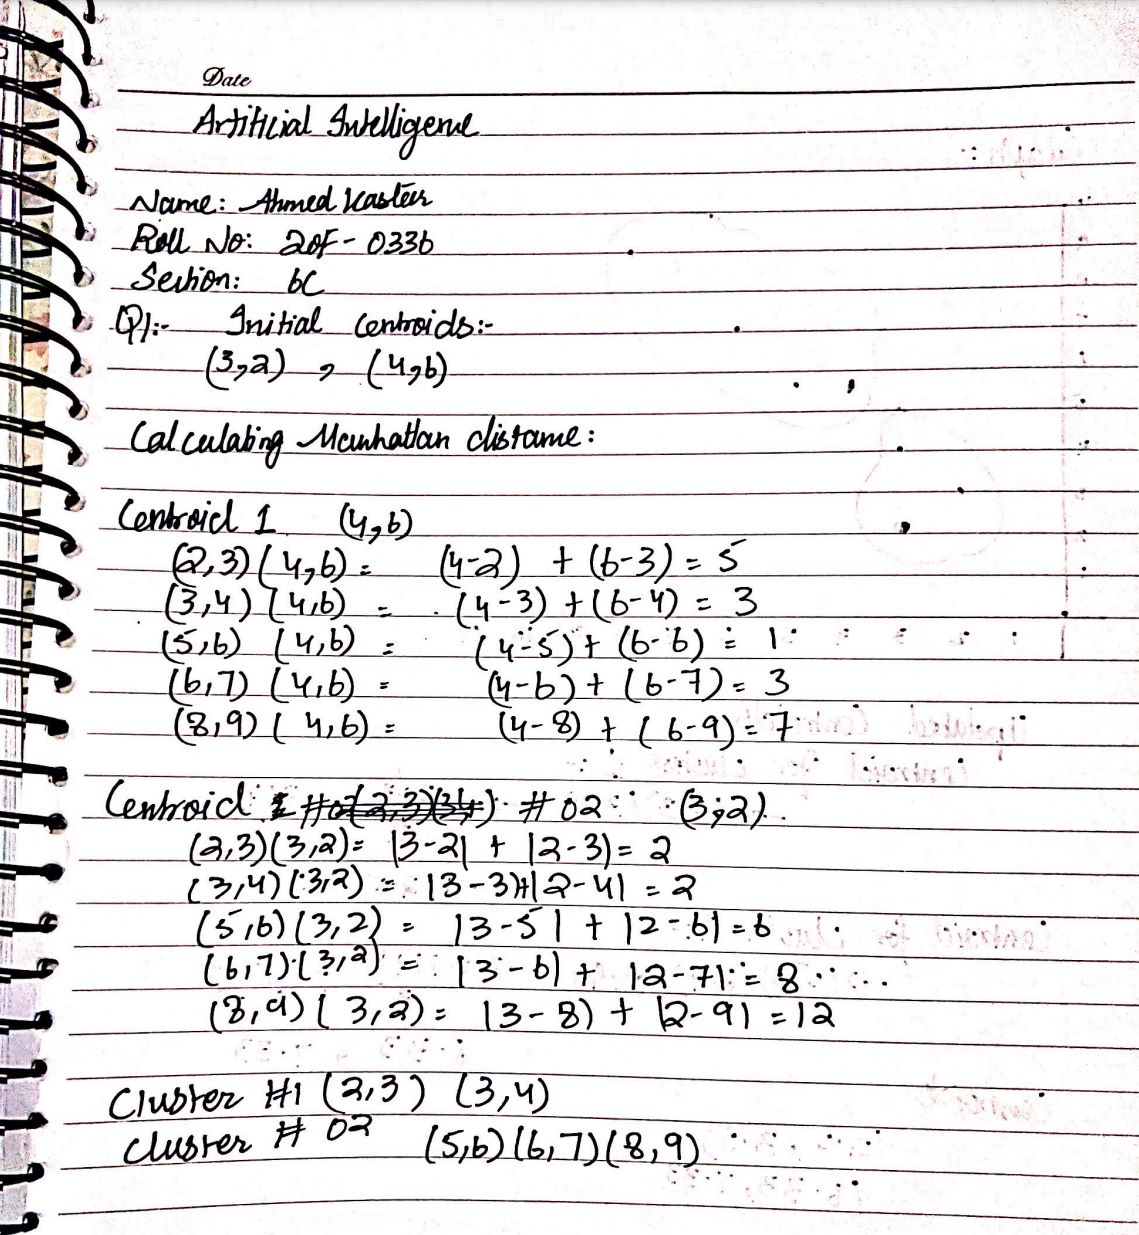 Date
Artificial Intelligence
Name: Ahmed
Roll No: 20F-0336
Section: 6C
Q1:- Initial Centroids:-
(3,2) , (4,6)
Calculating Manhattan distance:
Centroid 1 (4,6)
(2,3) (4,6) = (4-2) + (6-3) = 5
(3,4) (4,6) = (4-3) + (6-4) = 3
(5,6) (4,6) = (4-5) + (6-6) = 1
(6,7) (4,6) = (4-6) + (6-7) = 3
(8,9) (4,6) = (4-8) + (6-9) = 7
Centroid #02 (3,2).
(2,3)(3,2) = |3-2| + |2-3) = 2
(3,4) (3,2) = |3-3)+|2-4| = 2
(5,6) (3,2) = |3-5| + |2-6| = 6
(6,7) (3,2) = |3-6| + |2-7| = 8
(8,9) (3,2) = |3-8) + |2-9| = 12
Cluster #1 (2,3) (3,4)
Cluster # 02 (5,6) (6,7) (8,9)